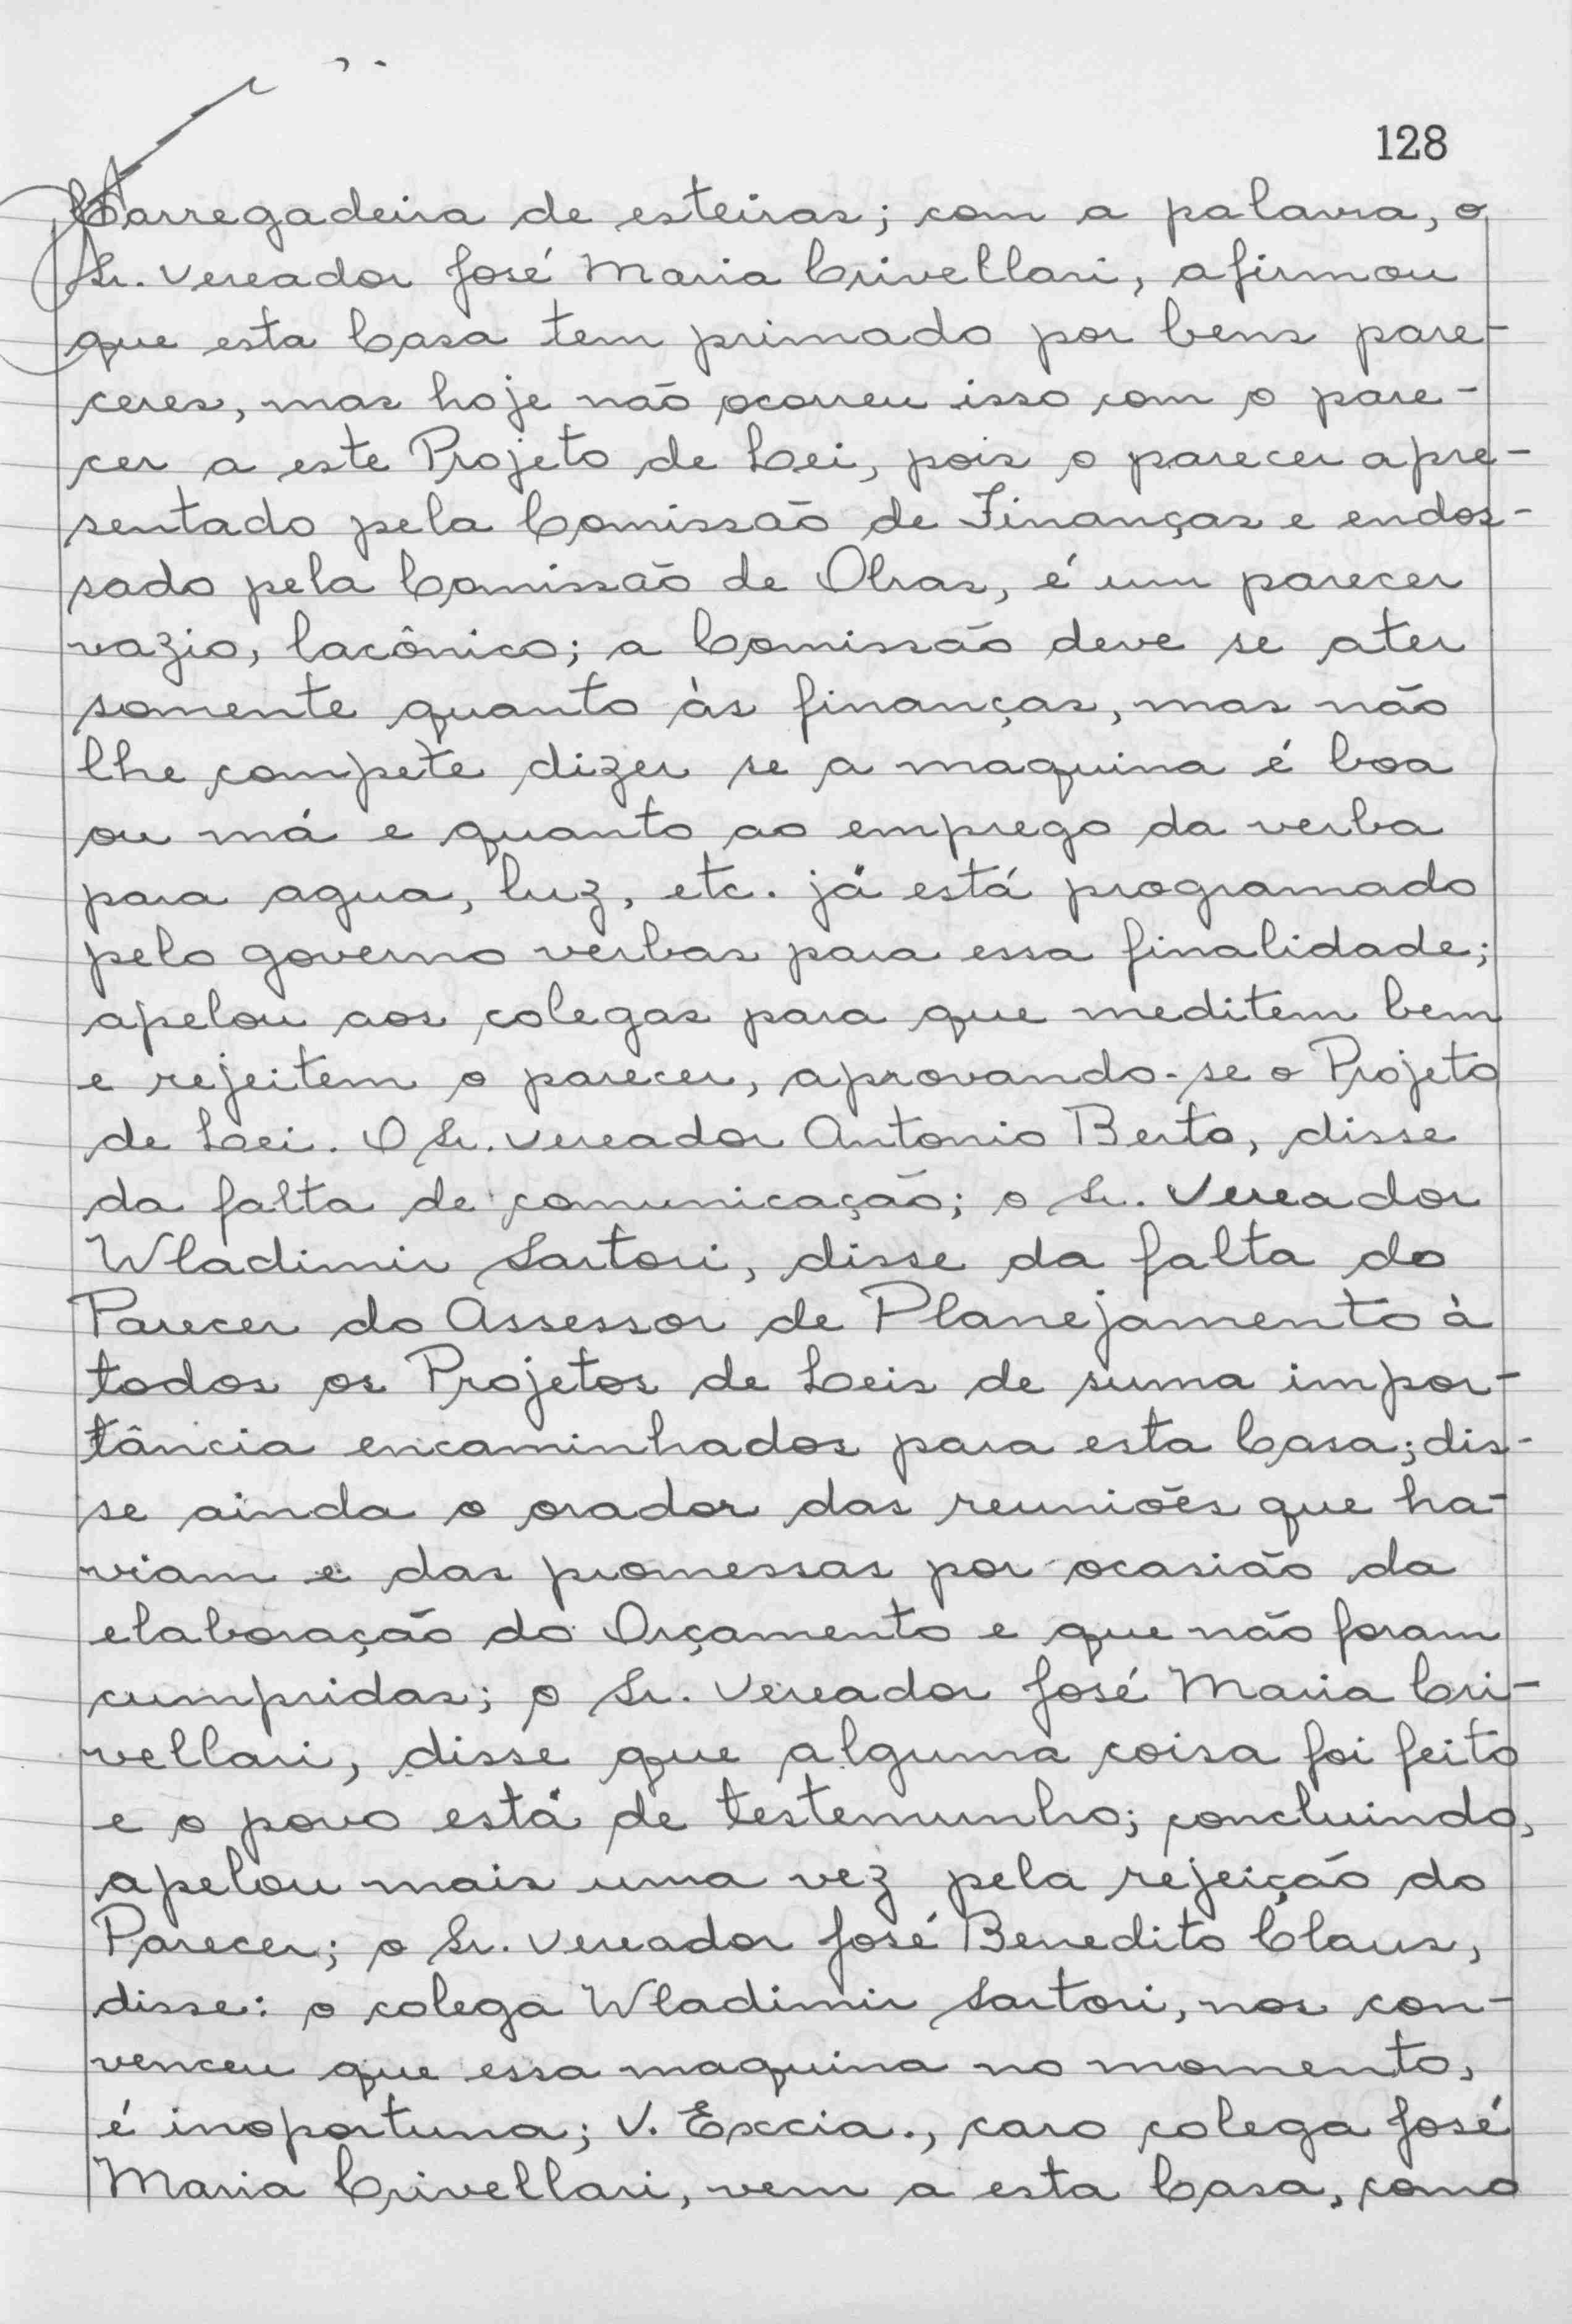 128
Carregadeira de esteiras; com a palavra, o
Sr. Vereador José Maria Crivellari, afirmou
que esta Casa tem primado por bens pare-
ceres, mas hoje não ocorreu isso com o pare-
cer a este Projeto de Lei, pois o parecer apre-
sentado pela Comissão de Finanças e endos-
sado pela Comissão de Obras, é um parecer
vazio, lacônico; a Comissão deve se ater
somente quanto às finanças, mas não
lhe compete dizer se a maquina é boa
ou má e quanto ao emprego da verba
para agua, luz, etc. já está programado
pelo governo verbas para essa finalidade;
apelou aos colegas para que meditem bem
e rejeitem o parecer, aprovando-se o Projeto
de Lei. O Sr. Vereador Antonio Berto, disse
da falta de comunicação; o Sr. Vereador
Wladimir Sartori, disse da falta do
Parecer do Assessor de Planejamento à
todos os Projetos de Leis de suma impor-
tância encaminhados para esta Casa; dis-
se ainda o orador das reuniões que ha-
viam e das promessas por ocasião da
elaboração do Orçamento e que não foram
cumpridas; o Sr. Vereador José Maria Cri-
vellari, disse que alguma coisa foi feito
e o povo está de testemunho; concluindo,
apelou mais uma vez pela rejeição do
Parecer; o Sr. Vereador José Benedito Claus,
disse: o colega Wladimir Sartori, nos con-
venceu que essa maquina no momento,
é inoportuna; V. Excia., caro colega José
Maria Crivellari, vem a esta Casa, como